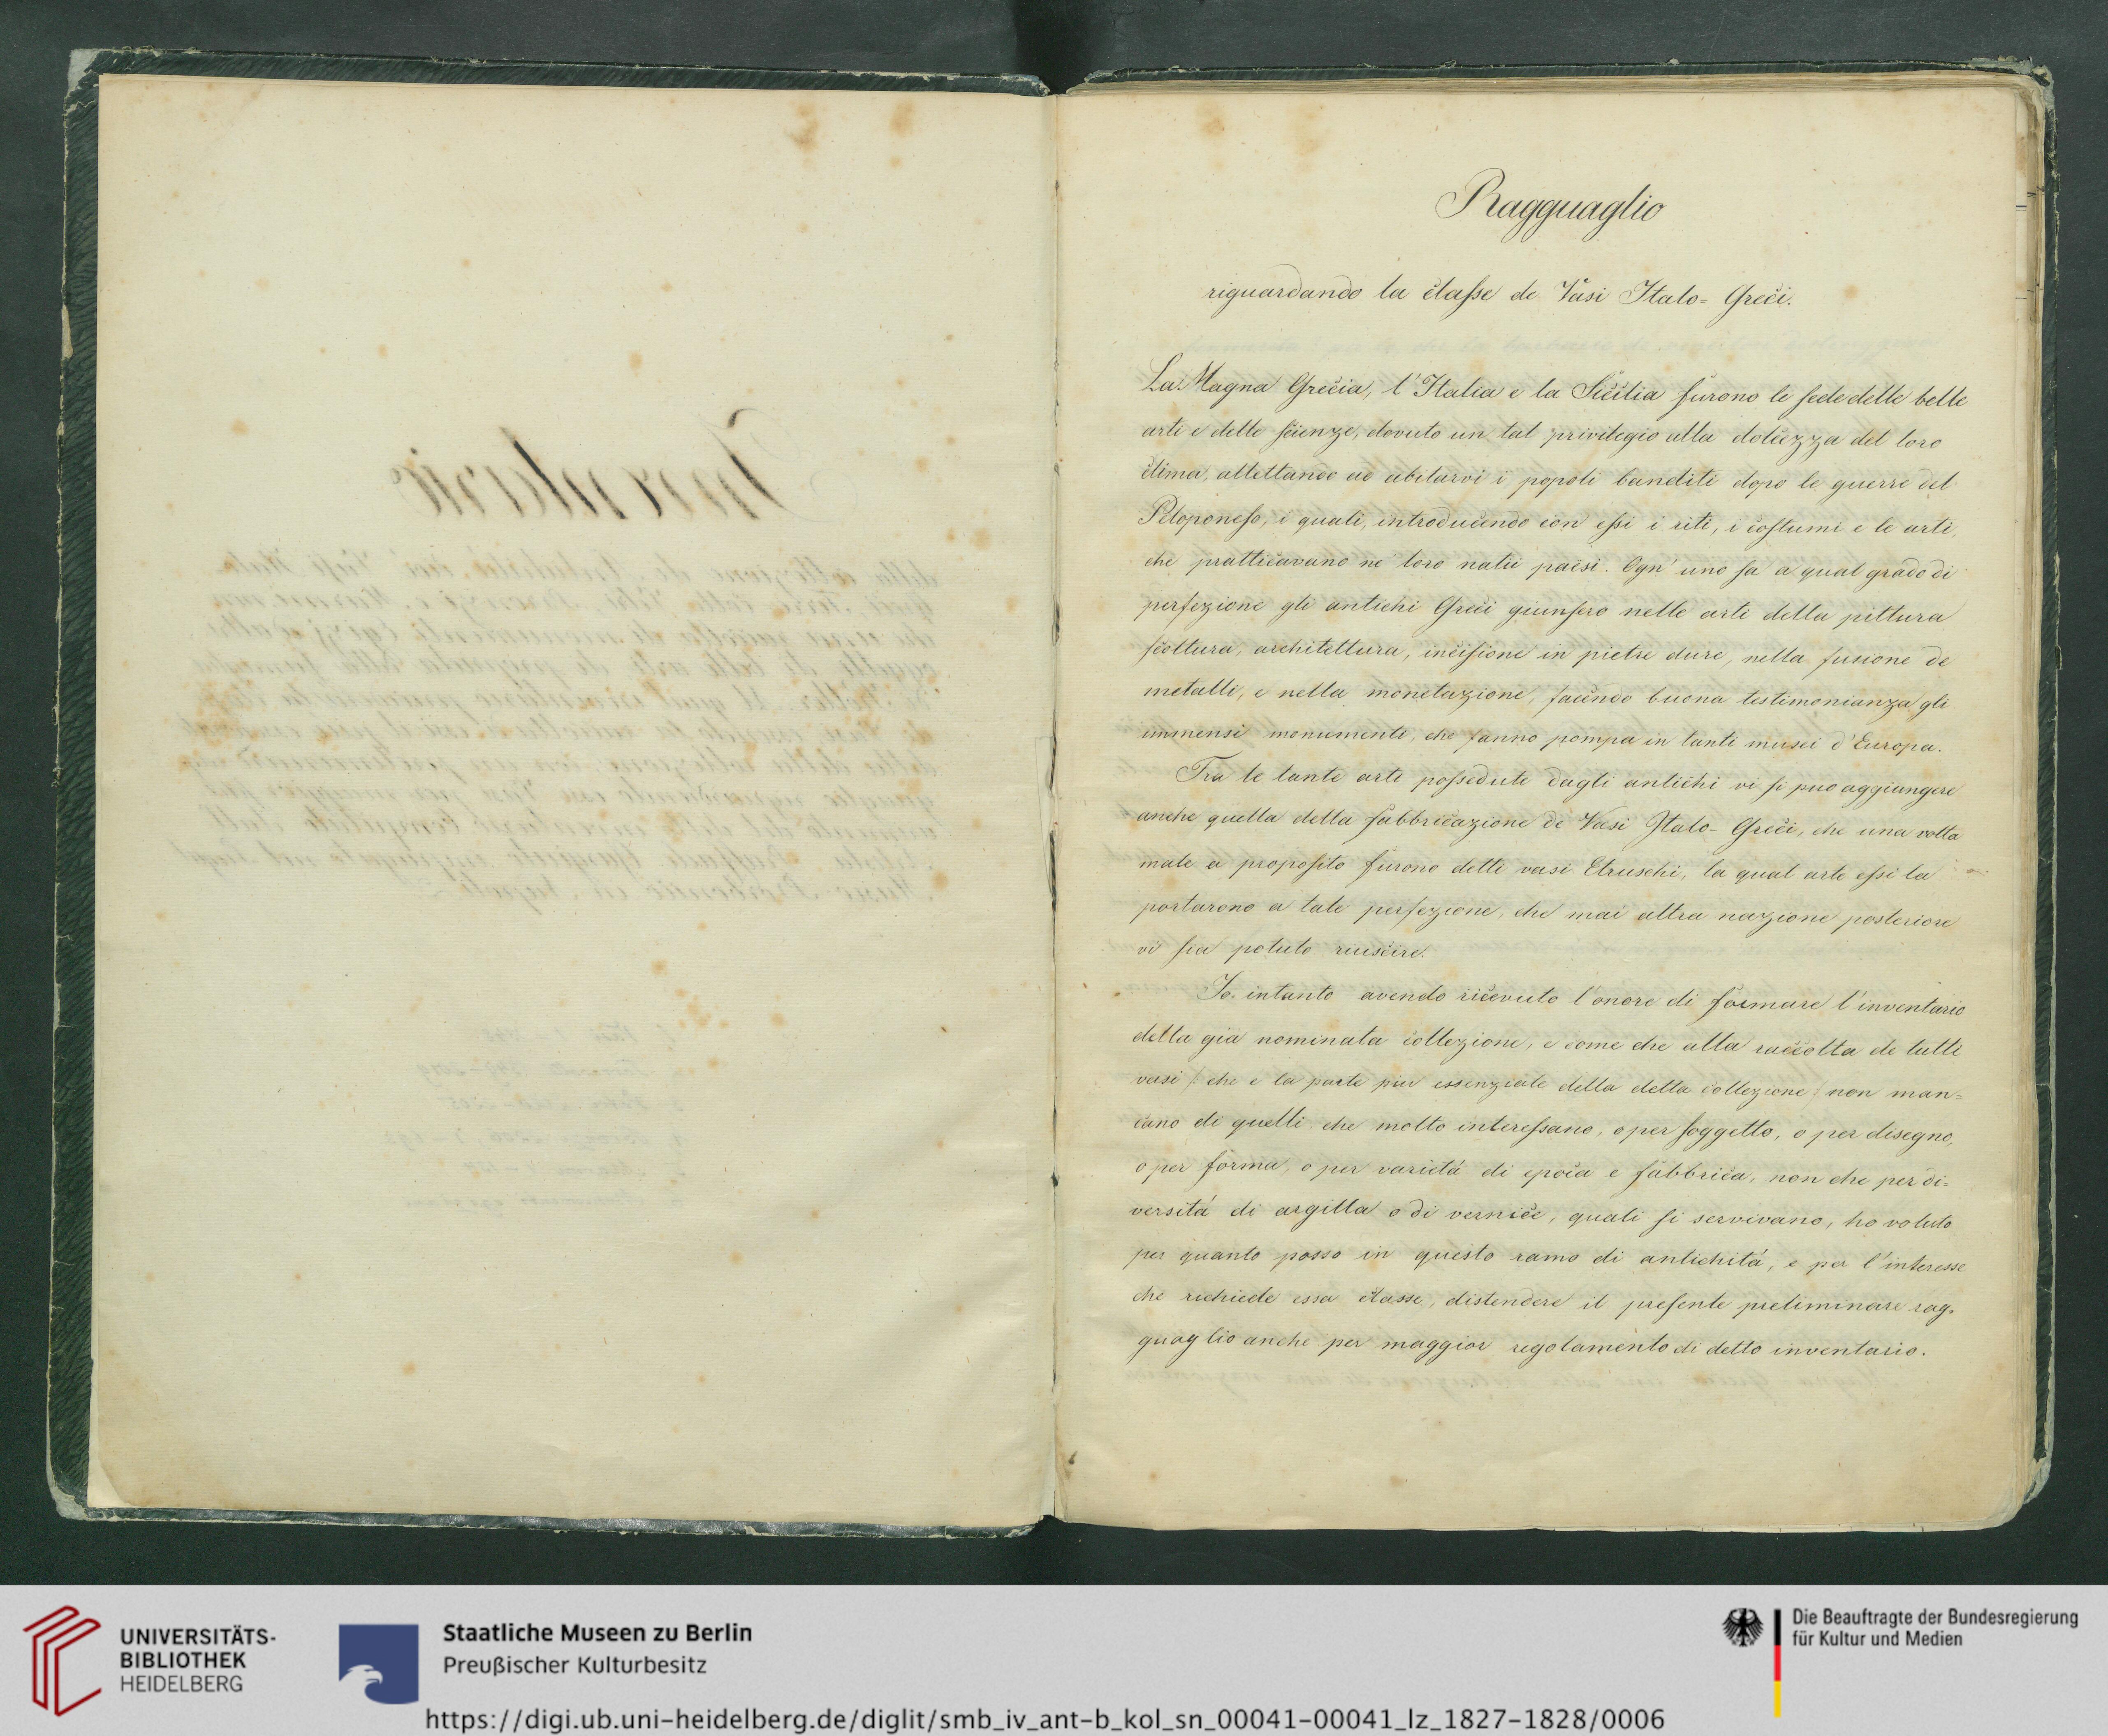 Ragguaglio
riguardando la claſse de Vasi Italo-Greci.
La Magna Grecia, l'Italia e la Sicilia furono le ſede delle belle
arti e delle ſcienze, dovuto un tal privilegio alla dolcezza del loro
clima, allettando ad abitarvi i popoli banditi dopo le guerre del
Peloponeſo, i quali, introducendo con eſsi i riti, i coſtumi e le arti,
che pratticavano ne loro natii paesi. Ogn' uno ſa a qual grado di
perfezione gli antichi Greci giunſero nelle arti della pittura
ſcoltura, architettura, inciſione in pietre dure, nella fusione de
metalli, e nella monetazione, facendo buona testimonianza gli
immensi monumenti, che fanno pompa in tanti musei d'Europa.
Tra le tante arti poſsedute dagli antichi vi ſi puo aggiungere
anche quella della fabbricazione de Vasi Italo-Greci, che una volta
male a propoſito furono detti vasi Etruschi, la qual arte eſsi la
portarono a tale perfezione, che mai altra nazione posteriore
vi ſia potuto riuscire.
Io intanto avendo ricevuto l'onore di formare l'inventario
della già nominata collezione, e come che alla raccolta de tutti
vasi /: che e la parte piu essenziale della detta collezione / non man=
cano di quelli che molto intereſsano, o per ſoggetto, o per disegno,
o per forma, o per varietá di epoca e fabbrica, non che per di=
versitá di argilla o di vernice, quali ſi servivano, ho voluto
per quanto posso in questo ramo di antichitá, e per l'interesse
che richiede essa classe, distendere il preſente preliminare rag=
guaglio anche per maggior regolamento di detto inventario.
Inventario
UNIVERSITÄTS-
BIBLIOTHEK
HEIDELBERG
Staatliche Museen zu Berlin
Preußischer Kulturbesitz
Die Beauftragte der Bundesregierung
für Kultur und Medien
https://digi.ub.uni-heidelberg.de/diglit/smb_iv_ant-b_kol_sn_00041-00041_lz_1827-1828/0006